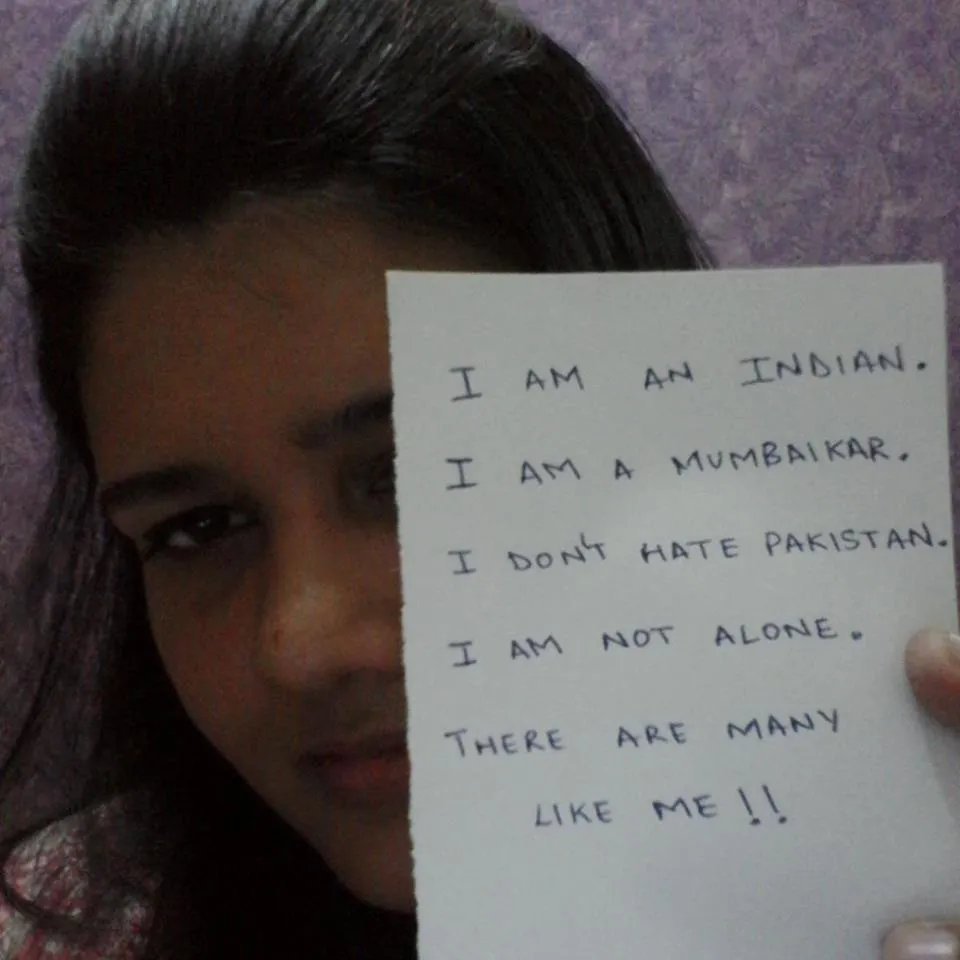 I AM AN INDIAN.
I AM A MUMBAIKAR.
I DON'T HATE PAKISTAN.
I AM NOT ALONE.
THERE ARE MANY
LIKE ME!!